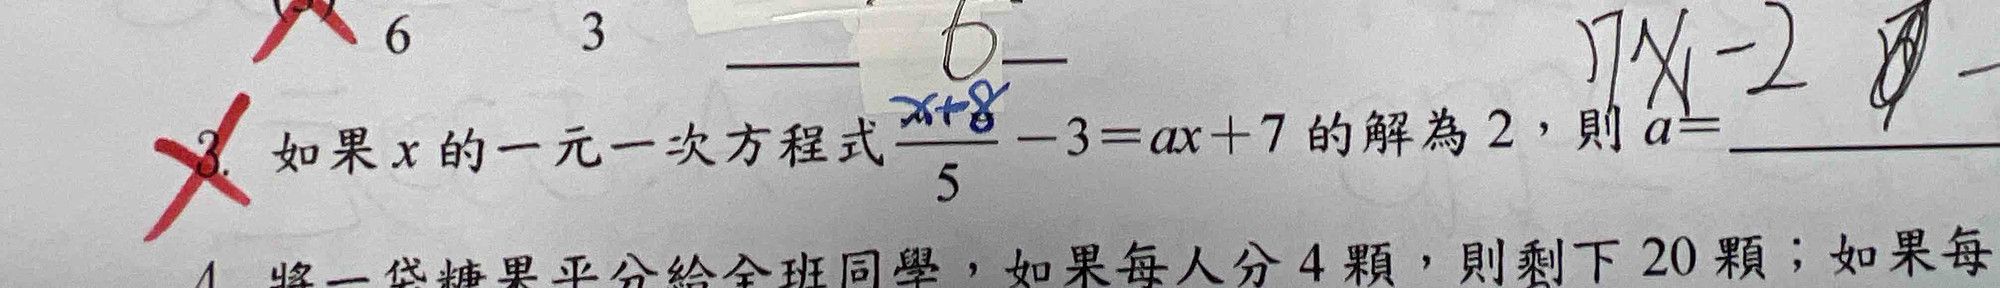 6 3 6
17x-2
3. 如果 x 的一元一次方程式 \frac{x+8}{5} -3=ax+7 的解為 2，則 a=
4. 將一袋糖果平分給全班同學，如果每人分 4 顆，則剩下 20 顆；如果每